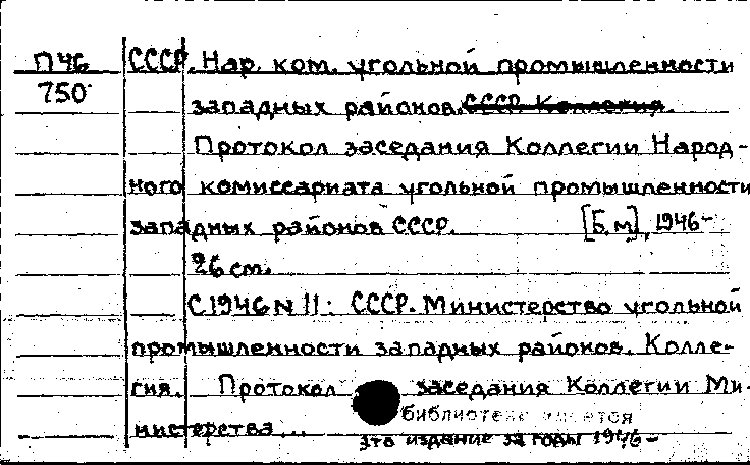 П46 СССР. Нар. ком. угольной промышленности
750 западных районов. СССР. Коллегия.
Протокол заседания Коллегии Народ-
ного комиссариата угольной промышленности
западных районов СССР. [Б.м], 1946-
26 см.
С 1946 N 11: СССР. Министерство угольной
промышленности западных районов. Колле-
гия. Протокол заседания Коллегии Ми-
библиотеке имеется
нистерства...
это издание за годы 1946-